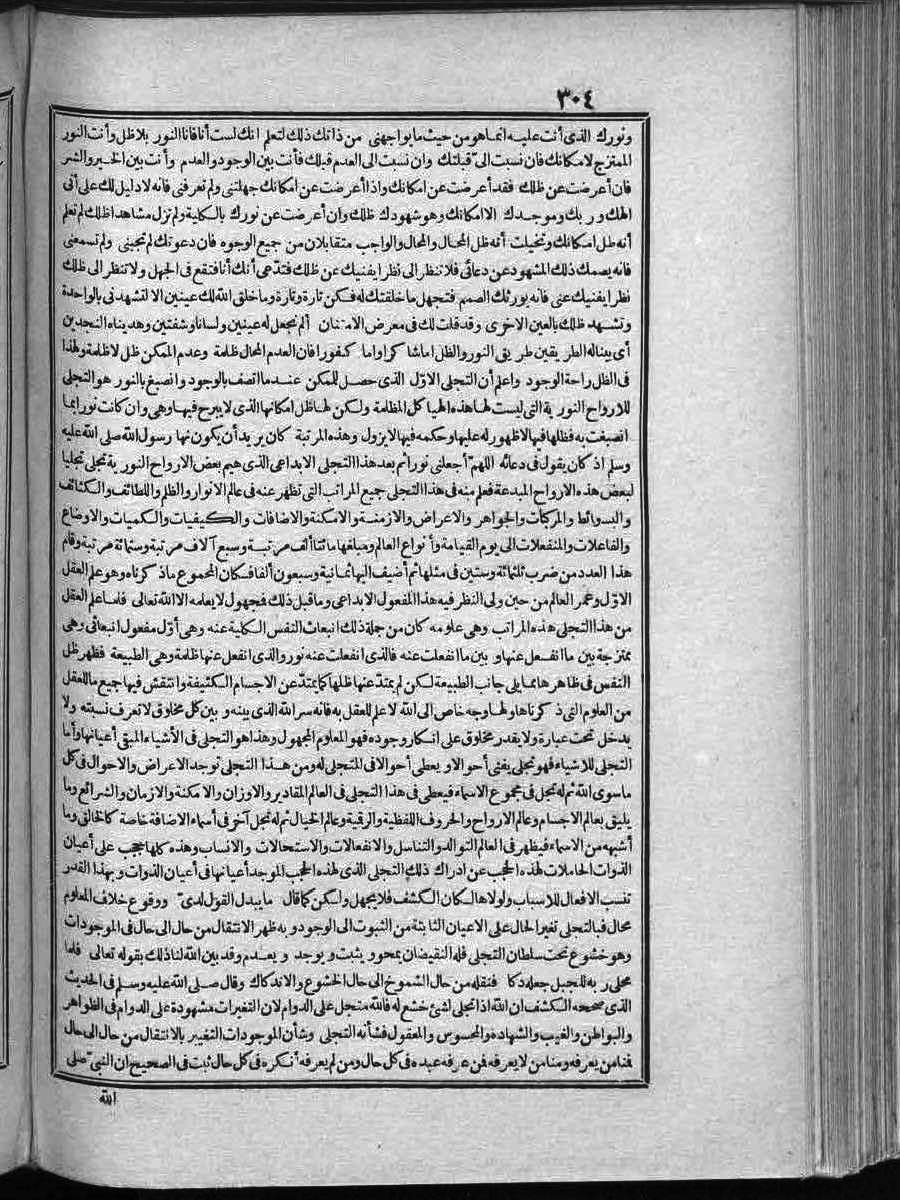 ٣٠٤
ونورك الذى أنت عليه انما هو من حيث ما يواجهنى من ذاتك ذلك لتعلم انك لست أنا فانا النور بلا ظل وأنت النور
الممتزج لامكانك فان نسبت الىّ قبلتك وان نسبت الى العدم قبلك فأنت بين الوجود والعدم وأنت بين الخير والشر
فان أعرضت عن ظلك فقد أعرضت عن امكانك واذا أعرضت عن امكانك جهلتنى ولم تعرفنى فانه لا دليل لك على أنى
الهك وربك وموجدك الا امكانك وهو شهودك ظلك وان أعرضت عن نورك بالكلية ولم تزل مشاهدا ظلك لم تعلم
أنه ظل امكانك وتخيلت أنه ظل المحال والمحال والواجب متقابلان من جميع الوجوه فان دعوتك لم تجبنى ولم تسمعنى
فانه يصمك ذلك المشهود عن دعائى فلا تنظر الى نظرا يفنيك عن ظلك فتدّعى أنك أنا فتقع فى الجهل ولا تنظر الى ظلك
نظرا يفنيك عنى فانه يورثك الصمم فتجهل ما خلقتك له فكن تارة وتارة وما خلق الله لك عينين الا لتشهدنى بالواحدة
وتشهد ظلك بالعين الاخرى وقد قلت لك فى معرض الامتنان ألم نجعل له عينين ولسانا وشفتين وهديناه النجدين
أى بينا له الطريقين طريقى النور والظل اما شاكرا واما كفورا فان العدم المحال ظلمة وعدم الممكن ظل لا ظلمة ولهذا
فى الظل راحة الوجود واعلم أن التجلى الاوّل الذى حصل للممكن عندما اتصف بالوجود وانصبغ بالنور هو التجلى
للارواح النورية التى ليست لها هذه الهياكل المظلمة ولكن لها ظل امكانها الذى لا يبرح فيها وهى وان كانت نورا بما
انصبغت به فظلها فيها لا ظهور له عليها وحكمه فيها لا يزول وهذه المرتبة كان يريد أن يكون نها رسول الله صلى الله عليه
وسلم اذ كان يقول فى دعائه اللهمّ أجعلنى نورا ثم بعد هذا التجلى الابداعى الذى هيم بعض الارواح النورية تجلى تجليا
لبعض هذه الارواح المبدعة فعلم منه فى هذا التجلى جميع المراتب التى تظهر عنه فى عالم الانوار والظلم واللطائف والكثائف
والبسائط والمركبات والجواهر والاعراض والازمنة والامكنة والاضافات والكيفيات والكميات والاوضاع
والفاعلات والمنفعلات الى يوم القيامة وأنواع العالم ومبلغها مائتا ألف مرتبة وسبع آلاف مرتبة وستمائة مرتبة وقام
هذا العدد من ضرب ثلثمائة وستين فى مثلها ثم أضيف اليها ثمانية وسبعون ألفا فكان المجموع ما ذكرناه وهو علم العقل
الاوّل وعمر العالم من حين ولى النظر فيه هذا المفعول الابداعى وما قبل ذلك فجهول لا يعلمه الا الله تعالى فلما علم العقل
من هذا التجلى هذه المراتب وهى علومه كان من جملة ذلك انبعاث النفس الكلية عنه وهى أوّل مفعول انبعاثى وهى
ممتزجة بين ما انفعل عنها وبين ما انفعلت عنه فالذى انفعلت عنه نور والذى انفعل عنها ظلمة وهى الطبيعة فظهر ظل
النفس فى ظاهرها مما يلى جانب الطبيعة لكن لم يمتدّ عنها ظلها كما يمتدّ عن الاجسام الكثيفة وانتقش فيها جميع ما للعقل
من العلوم التى ذكرناها ولها وجه خاص الى الله لا علم للعقل به فانه سر الله الذى بينه وبين كل مخلوق لا تعرف نسبته ولا
يدخل تحت عبارة ولا يقدر مخلوق على انكار وجوده فهو المعلوم المجهول وهذا هو التجلى فى الأشياء المبقى أعيانها وأما
التجلى للاشياء فهو تجلى يفنى أحوالا ويعطى أحوالا فى المتجلى له ومن هذا التجلى توجد الاعراض والاحوال فى كل
ما سوى الله ثم له تجل فى مجموع الاسماء فيعطى فى هذا التجلى فى العالم المقادير والاوزان والامكنة والازمان والشرائع وما
يليق بعالم الاجسام وعالم الارواح والحروف اللفظية والرقمية وعالم الخيال ثم له تجل آخر فى أسماء الاضافة خاصة كالخالق وما
أشبهه من الاسماء فيظهر فى العالم التوالد والتناسل والانفعالات والاستحالات والانساب وهذه كلها حجب على أعيان
الذوات الحاملات لهذه الحجب عن ادراك ذلك التجلى الذى لهذه الحجب الموجد أعيانها فى أعيان الذوات وبهذا القدر
تنسب الافعال للاسباب ولولاها لكان الكشف فلا يجهل ولكن كما قال ما يبدل القول لدىّ ووقوع خلاف المعلوم
محال فبالتجلى تغير الحال على الاعيان الثابتة من الثبوت الى الوجود وبه ظهر الانتقال من حال الى حال فى الموجودات
وهو خشوع تحت سلطان التجلى فله النقيضان يمحو ويثبت ويوجد ويعدم وقد بين الله لنا ذلك بقوله تعالى فلما
تجلى ربه للجبل جعله دكا فنقله من حال الشموخ الى حال الخشوع والاندكاك وقال صلى الله عليه وسلم فى الحديث
الذى صححه الكشف ان الله اذا تجلى لشئ خشع له فالله متجل على الدوام لان التغيرات مشهودة على الدوام فى الظواهر
والبواطن والغيب والشهادة والمحسوس والمعقول فشأنه التجلى وشأن الموجودات التغيير بالانتقال من حال الى حال
فمنا من يعرفه ومنا من لا يعرفه فمن عرفه عبده فى كل حال ومن لم يعرفه أنكره فى كل حال ثبت فى الصحيح ان النبىّ صلى
الله